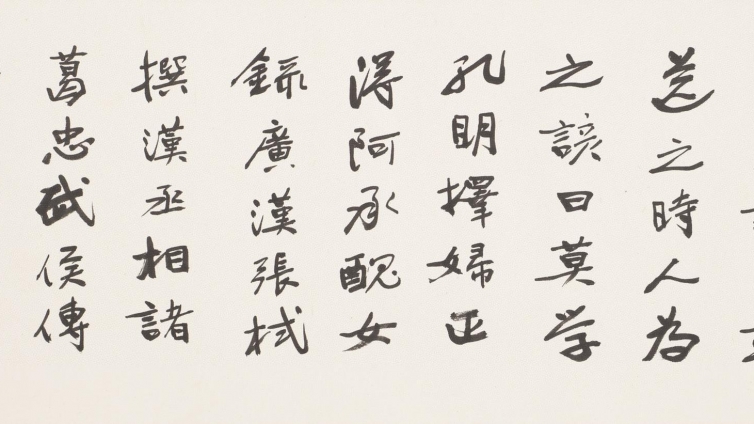 送之時人為
之諺曰莫学
孔明擇婦正
得阿承醜女
錄廣漢張栻
撰漢丞相諸
葛忠武侯傳